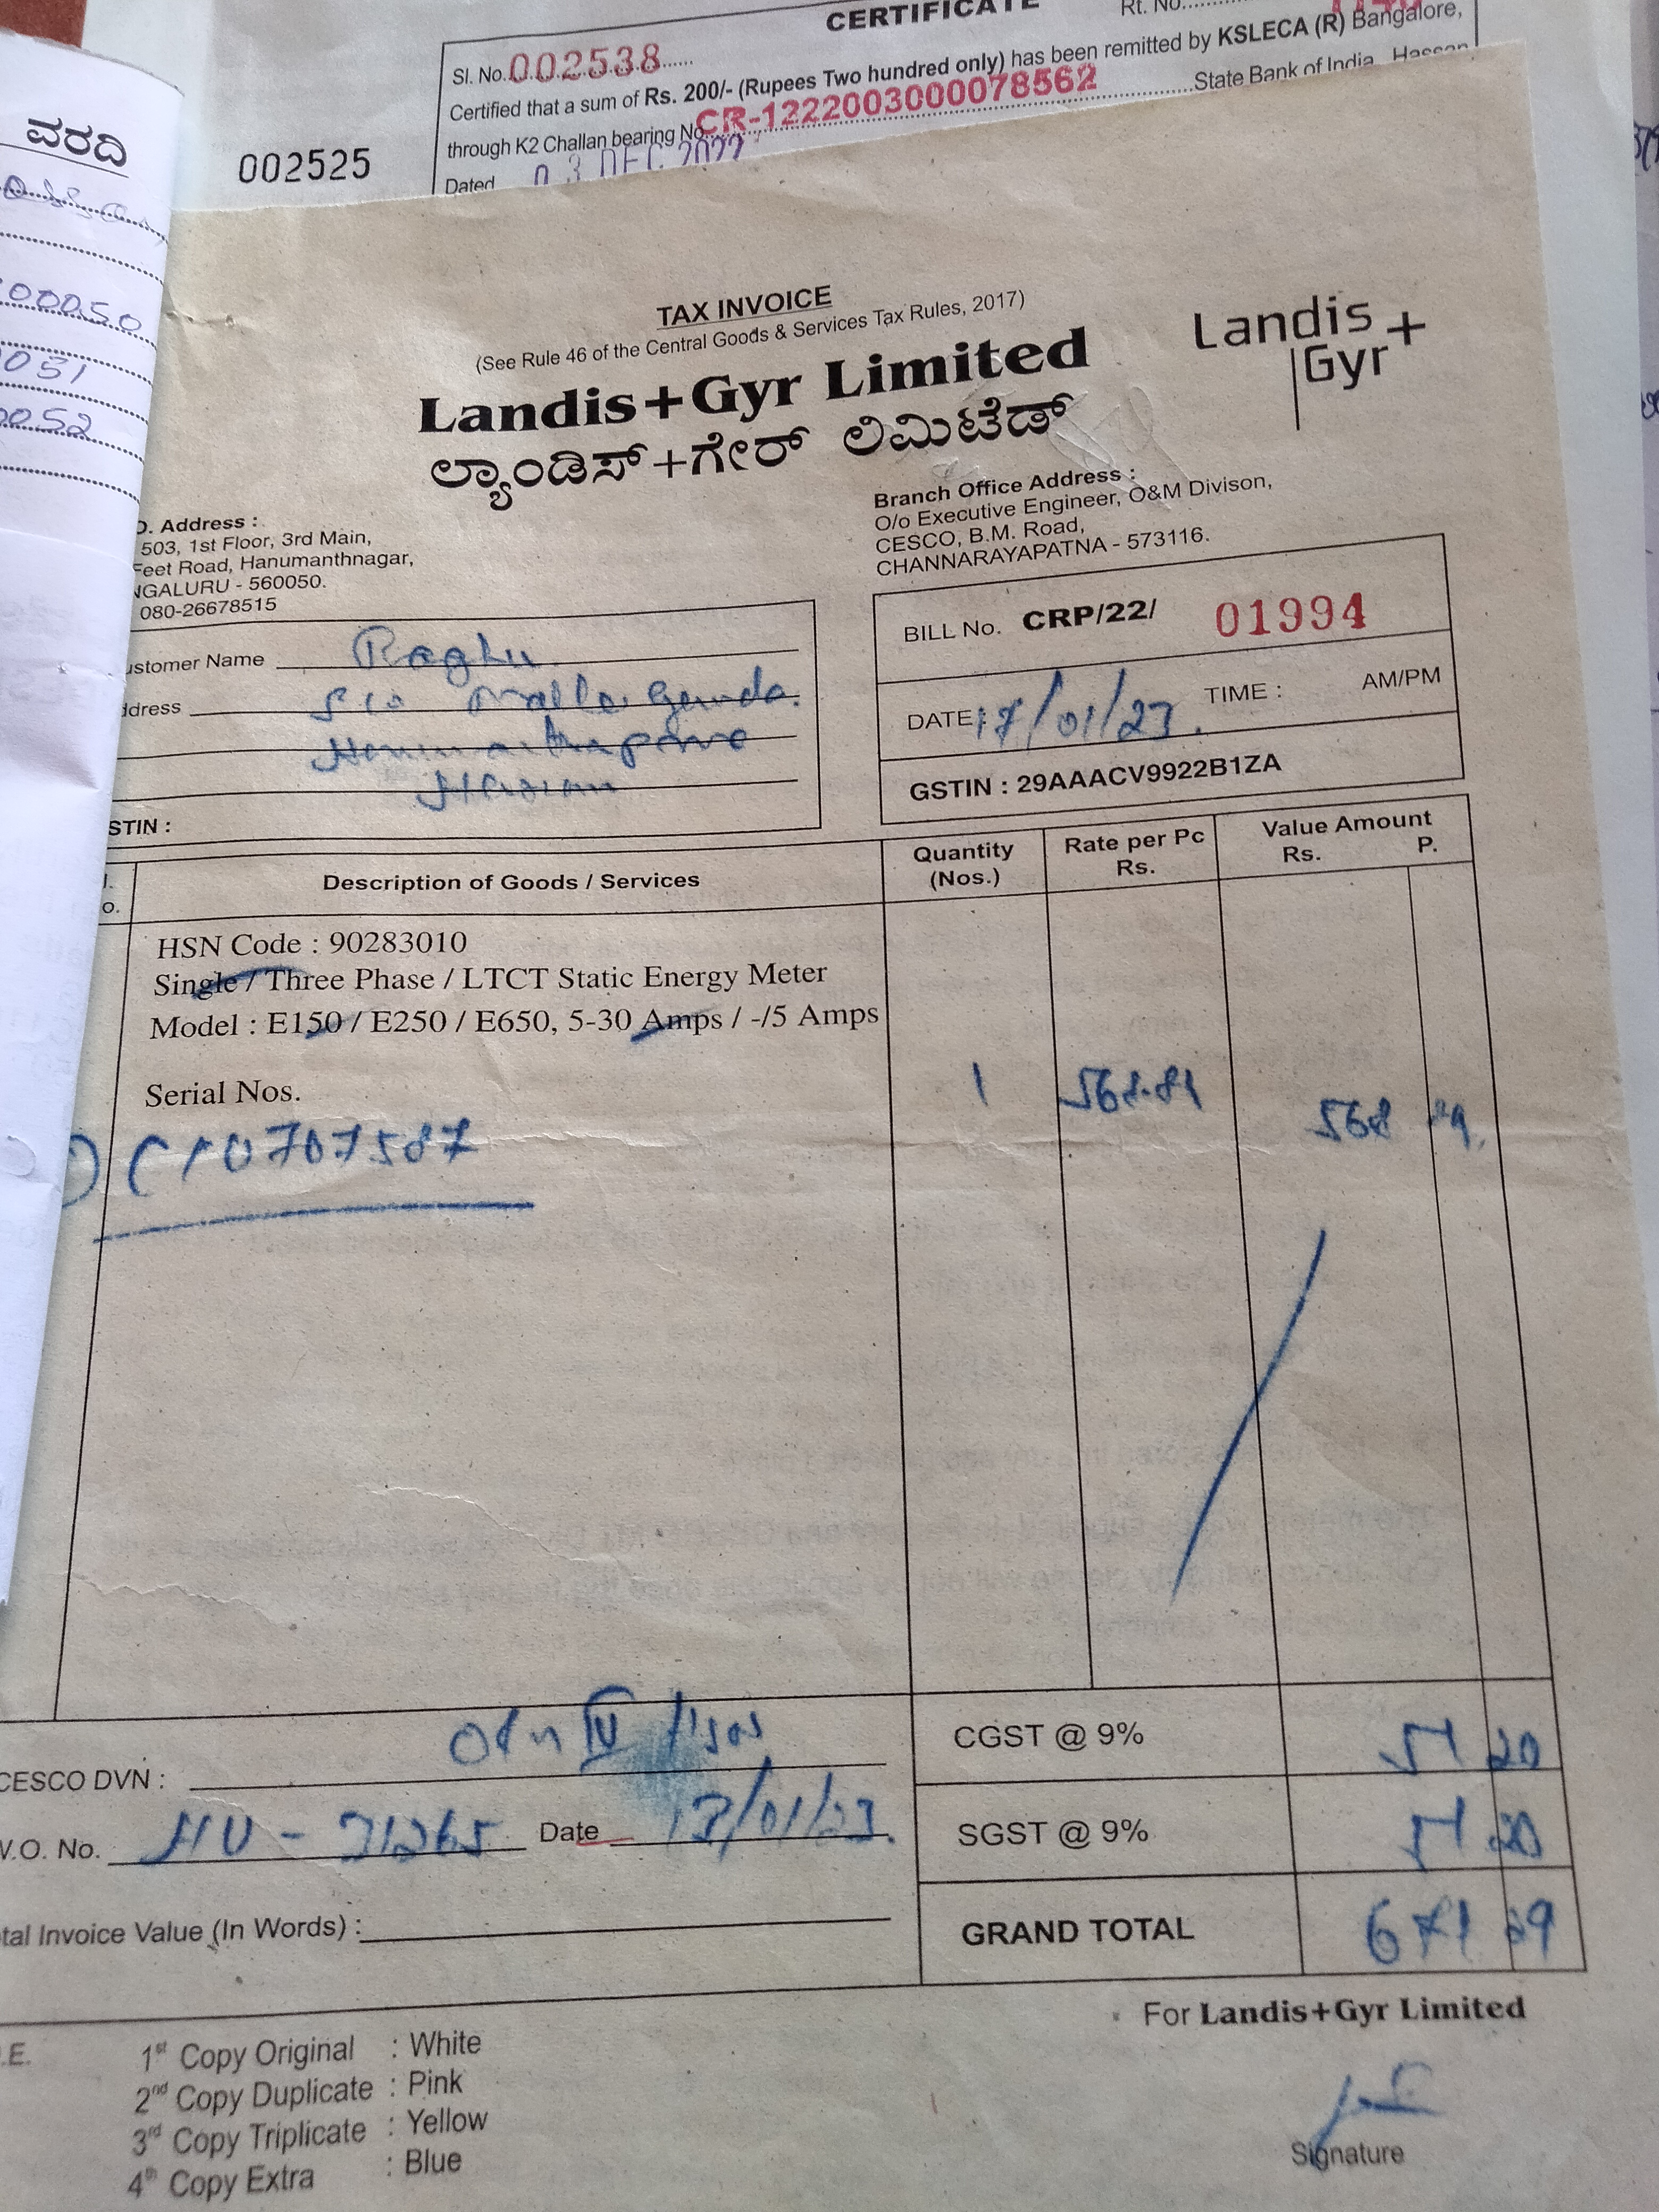 CERTIFICATE
Rt. No.
Sl. No. 002538
Certified that a sum of Rs. 200/- (Rupees Two hundred only) has been remitted by KSLECA (R) Bangalore,
through K2 Challan bearing No. CR-1222003000078562 State Bank of India, Hassan
Dated 03 DEC 2022
002525
ವರದಿ
00050
051
0052
TAX INVOICE
(See Rule 46 of the Central Goods & Services Tax Rules, 2017)
Landis+Gyr Limited
ಲ್ಯಾಂಡಿಸ್+ಗೇರ್ ಲಿಮಿಟೆಡ್
Landis+
Gyr
O. Address :
503, 1st Floor, 3rd Main,
Feet Road, Hanumanthnagar,
NGALURU - 560050.
080-26678515
Branch Office Address :
O/o Executive Engineer, O&M Divison,
CESCO, B.M. Road,
CHANNARAYAPATNA - 573116.
ustomer Name Raghu
ddress S/o Malle Gowda.
Hassan
STIN :
BILL No. CRP/22/ 01994
DATE : 17/01/23. TIME : AM/PM
GSTIN : 29AAACV9922B1ZA
l. o. Description of Goods / Services Quantity (Nos.) Rate per Pc Rs. Value Amount Rs. P.
HSN Code : 90283010
Single / Three Phase / LTCT Static Energy Meter
Model : E150 / E250 / E650, 5-30 Amps / -/5 Amps
Serial Nos. 1 568.89 568 89.
10707587
CESCO DVN :
W.O. No. 31265 Date 17/01/23.
tal Invoice Value (In Words) :
CGST @ 9% 51 20
SGST @ 9% 51 20
GRAND TOTAL 671 29
For Landis+Gyr Limited
Signature
.E.
1st Copy Original : White
2nd Copy Duplicate : Pink
3rd Copy Triplicate : Yellow
4th Copy Extra : Blue